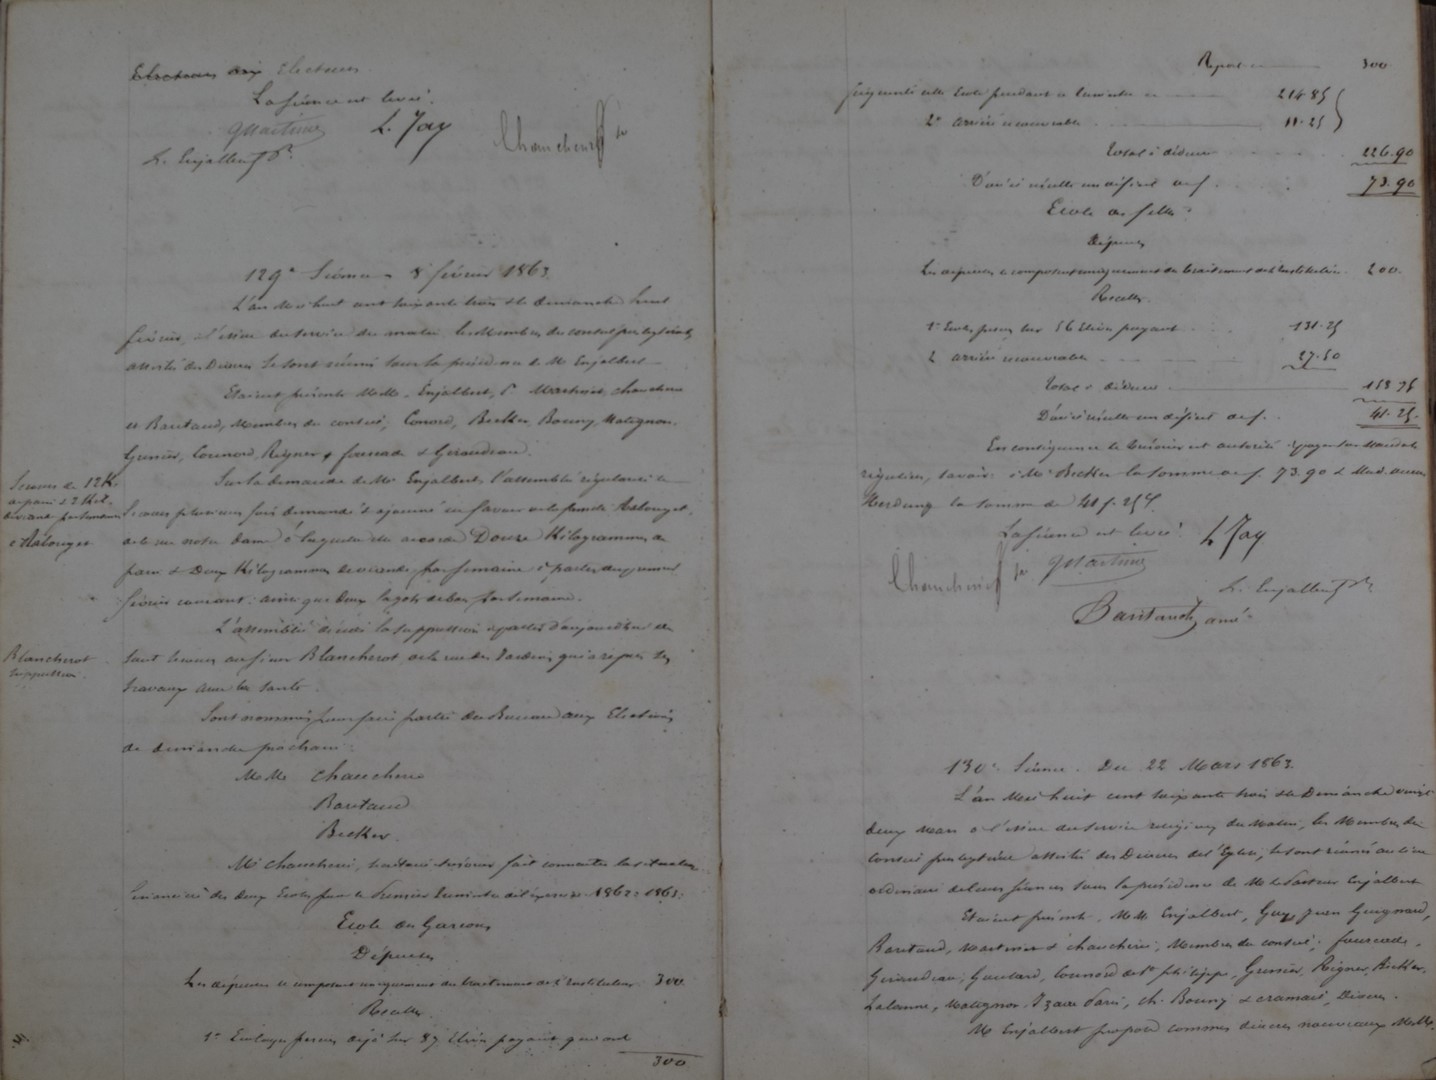 Electeurs aux Electeurs.
La séance est levée.
G Martinie L. Jay Chaucherie
L. Enjalbert P.
129e Séance 8 février 1863
L'an Mil huit cent soixante trois & le dimanche huit
février, à l'issue du service du matin les Membres du conseil presbytéral,
assistés des Diacres se sont réunis sous la présidence de Mr Enjalbert
Etaient présents MMrs Enjalbert, P. Martinie, Chaucherie
et Baritaud, Membres du conseil; Conord, Becker, Bouny, Matignon,
Grenier, Cournord, Reigner, Fourcade & Giraudeau.
Sur la demande de Mr Enjalbert l'assemblée régularise le
Secours plusieurs fois demandé & ajourné en faveur de la famille Aslonget,
de la rue notre Dame à laquelle elle accorde Douze Kilogrammes de
pain & Deux Kilogrammes de viande par semaine à partir du premier
février courant: ainsi que deux fagots de bois par semaine.
Secours de 12 K.
de pain & 2 Kil.
de viande par semaine
à Aslonget
L'assemblée décide la suppression à partir d'aujourd'hui de
tout secours au sieur Blancherot, de la rue des Jardins, qui a repris ses
travaux avec la santé.
Blancherot
suppression.
Sont nommés pour faire partie du Bureau aux Elections
de dimanche prochain:
MMrs Chaucherie
Baritaud
Becker.
Mr Chaucherie, fait connaitre la situation
financière des deux Ecoles pour le Premier Trimestre de l'exercice 1862-1863.
Ecole de Garçons
Dépenses
Les dépenses se composent uniquement du traitement de l'Instituteur. 300
Recettes.
1° Ecolages perçus déjà sur 87 Elèves payant qui ont
300
Report 300
fréquenté cette Ecole pendant ce Trimestre 214.85
2° arriéré recouvrable 11.25
Total à déduire 226.90
D'où il résulte un déficit de f. 73.90
Ecole de filles.
Dépenses
Les dépenses se composent uniquement du traitement de l'Institutrice. 200.
Recettes.
1° Ecolages perçus sur 56 Elèves payant 131.25
2 arriéré recouvrable 27.50
Total à déduire 158.75
D'où il résulte un déficit de f. 41.25.
En conséquence le trésorier est autorisé à payer sur Mandats
réguliers, savoir: à Mr Becker la somme de f. 73.90 &
la somme de 41 f. 25 c.
La séance est levée. L Jay
Chaucherie G Martinie L. Enjalbert P.
Baritaud ainé
130e Séance. Du 22 Mars 1863.
L'an Mil huit cent soixante trois & le Dimanche vingt
deux Mars à l'issue du service religieux du Matin, les Membres du
Conseil presbytéral assistés des Diacres de l'Eglise, se sont réunis au lieu
ordinaire de leurs séances sous la présidence de Mr le Pasteur Enjalbert
Etaient présents, MM. Enjalbert, Guignard,
Baritaud, Martinie & Chaucherie, Membres du conseil; Fourcade,
Giraudeau, Goulard, Conord de St Philippe, Grenier, Reigner, Becker,
Lalanne, Matignon, Izaac Paris, Ch. Bouny & Cramaix, Diacres.
Mr Enjalbert propose comme diacres nouveaux MMrs